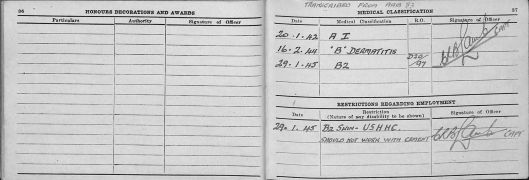 36
HONOURS DECORATIONS AND AWARDS
Particulars Authority Signature of Officer
TRANSCRIBED FROM
MEDICAL CLASSIFICATION 37
Date Medical Classification R.O. Signature of Officer
20.1.42 A I
16.2.44 "B" DERMATITIS
29.1.45 B2
CAPT
RESTRICTIONS REGARDING EMPLOYMENT
Date Restriction (Nature of any disability to be shown) Signature of Officer
29.1.45 B2 SKIN - USHHC. CAPT
SHOULD NOT WORK WITH CEMENT